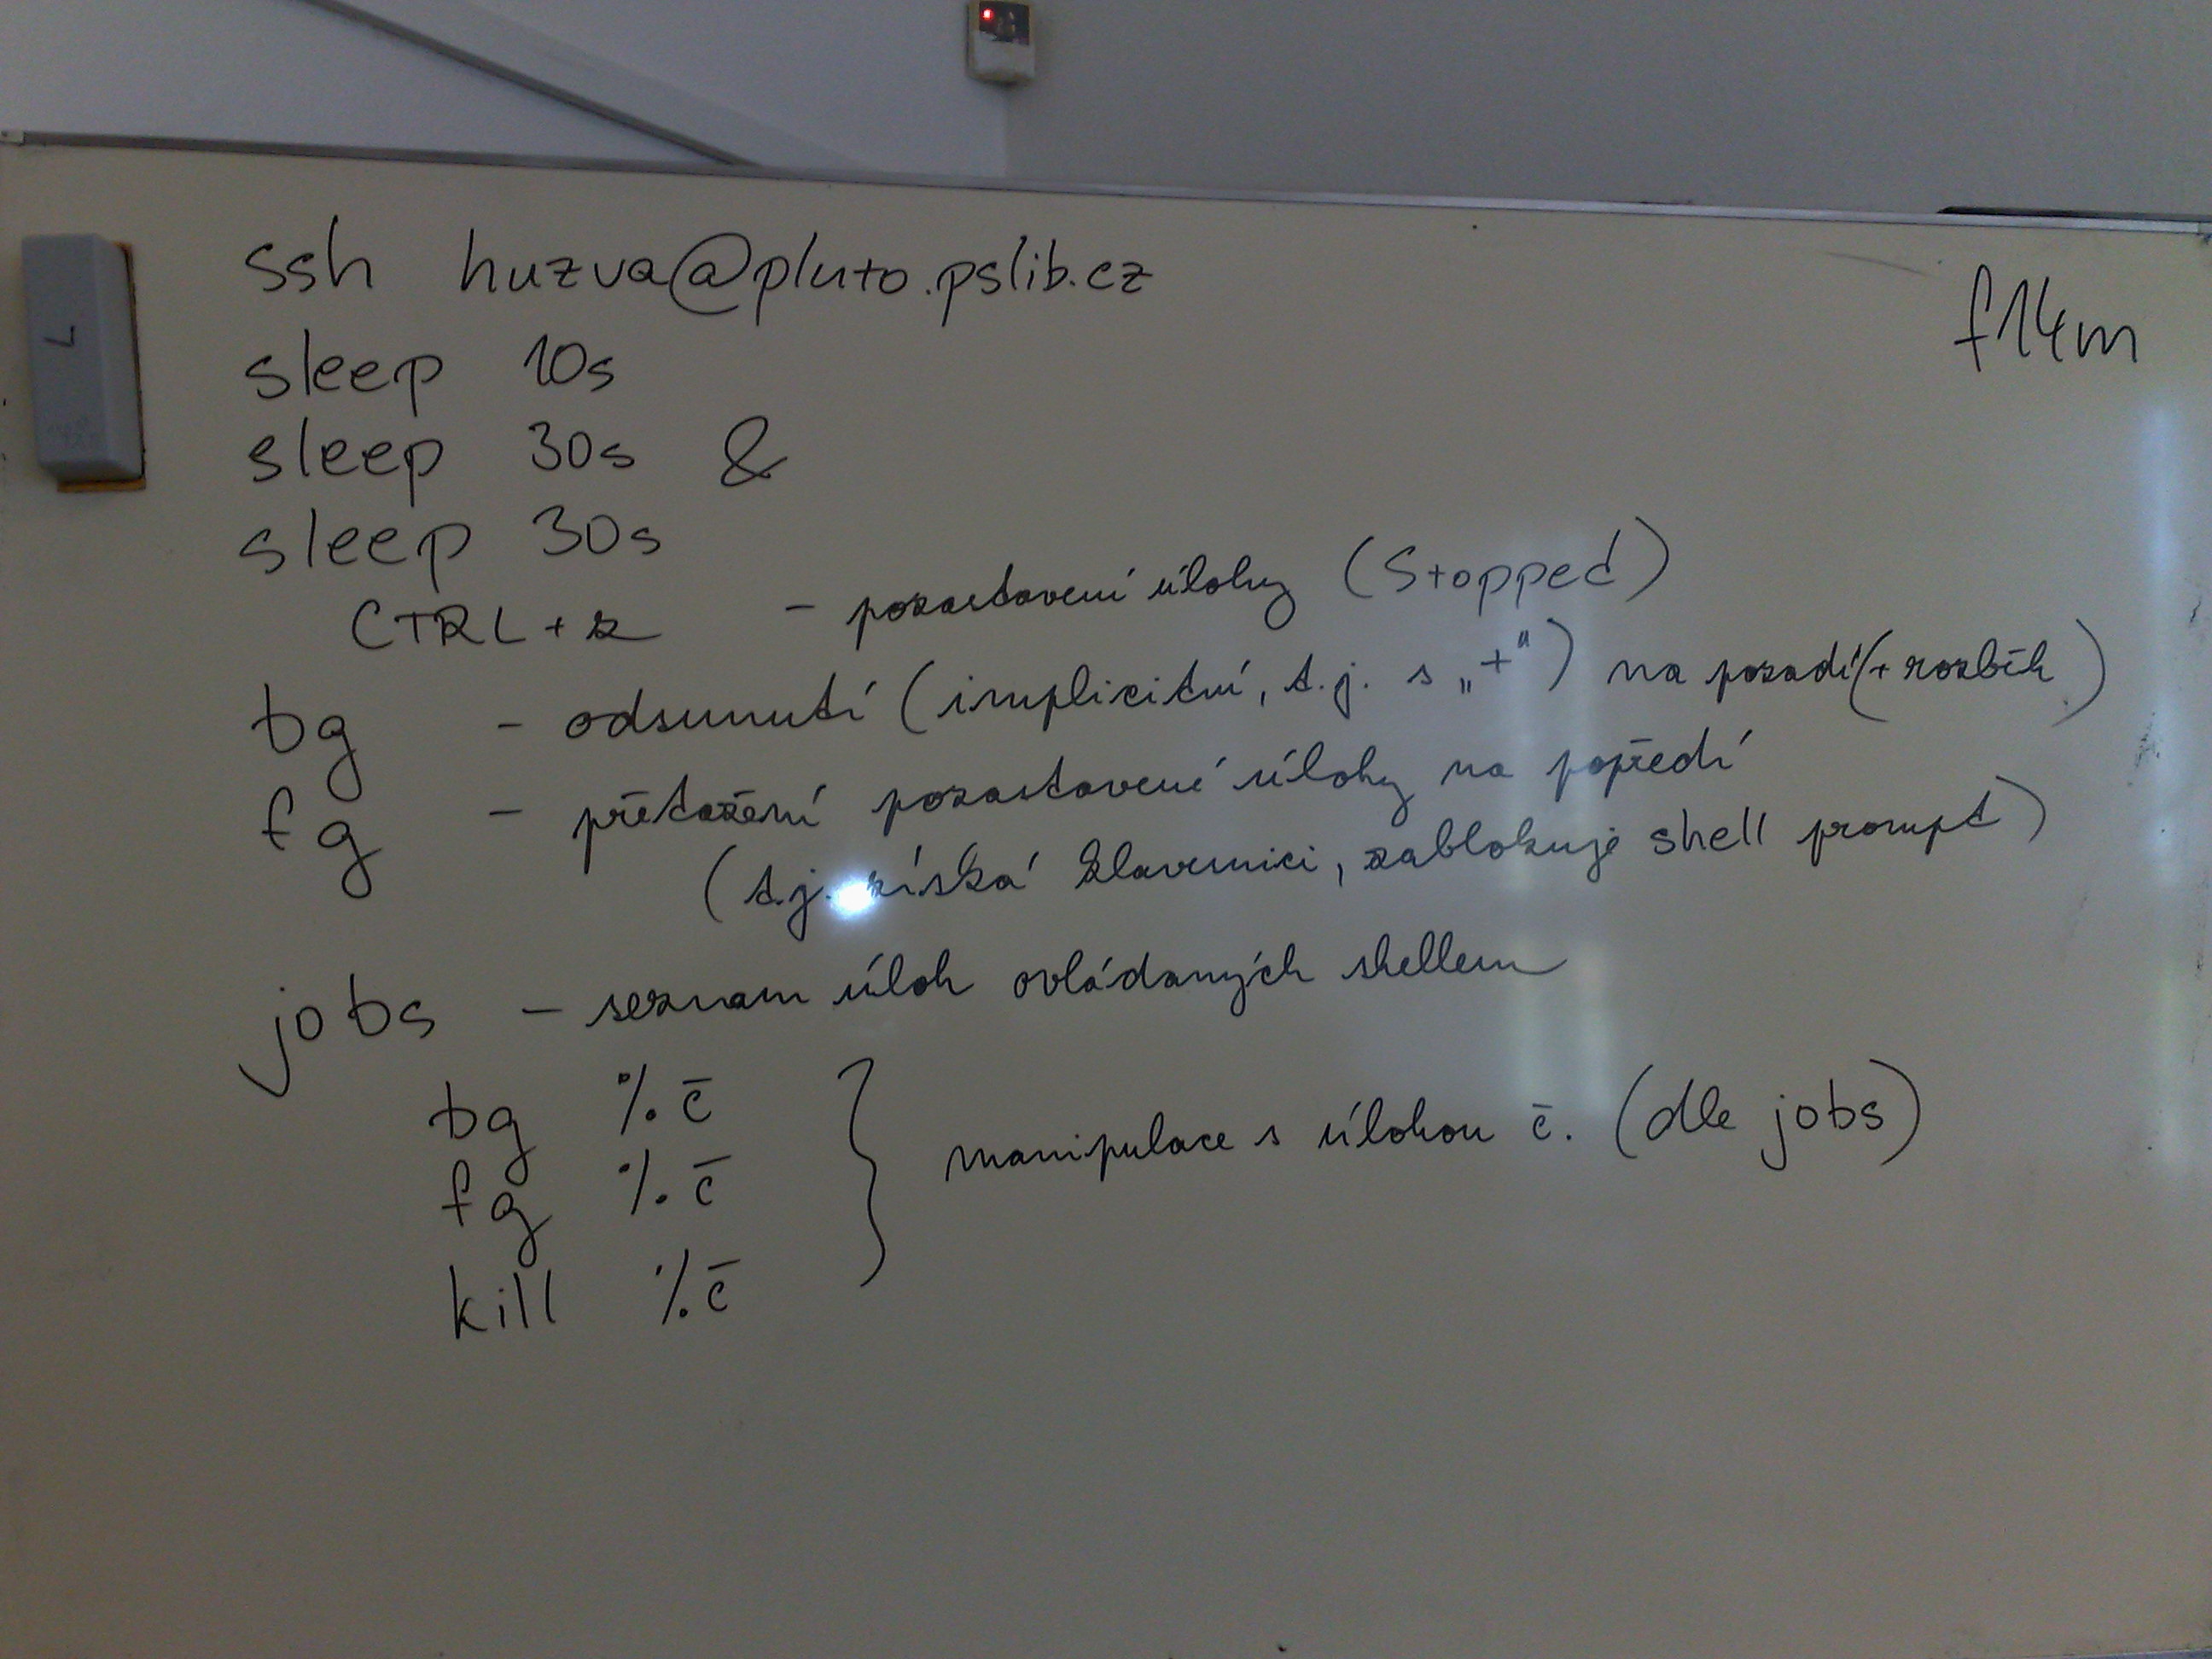 ssh huzva@pluto.pslib.cz
f14m
sleep 10s
sleep 30s &
sleep 30s
CTRL+z - pozastavení úlohy (Stopped)
bg - odsunutí (implicitní, t.j. s „+“) na pozadí (+ rozběh)
fg - přetažení pozastavené úlohy na popředí
(t.j. získá klávesnici, zablokuje shell prompt)
jobs - seznam úloh ovládaných shellem
bg %č
fg %č
kill %č
manipulace s úlohou č. (dle jobs)
L